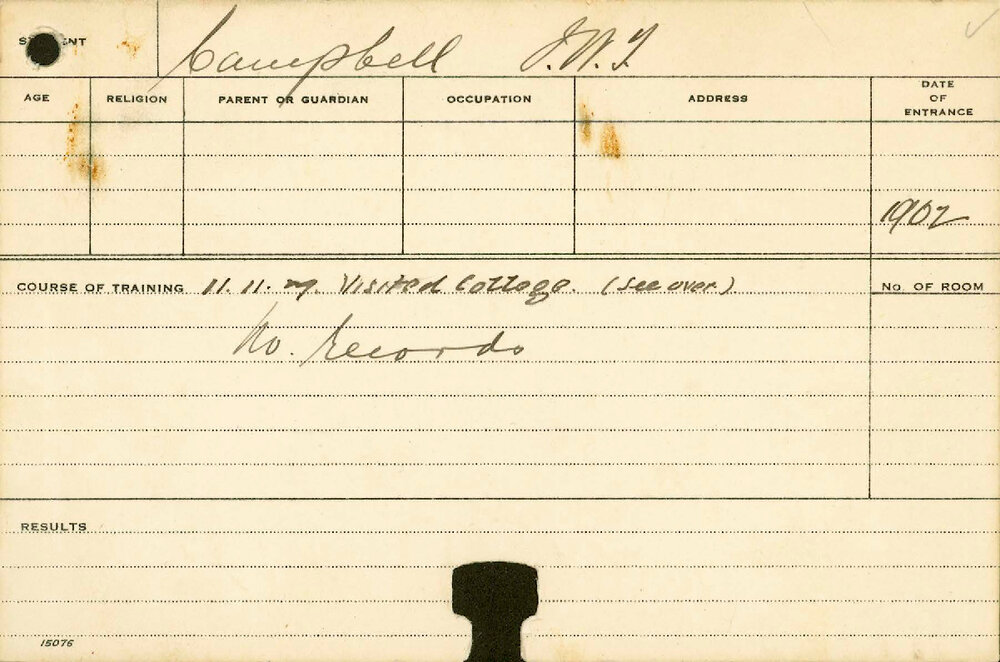 STUDENT Campbell J.W.T.
AGE RELIGION PARENT OR GUARDIAN OCCUPATION ADDRESS DATE OF ENTRANCE
1902
COURSE OF TRAINING 11.11. Visited College. (See over.) No. OF ROOM
No. Records
RESULTS
15076